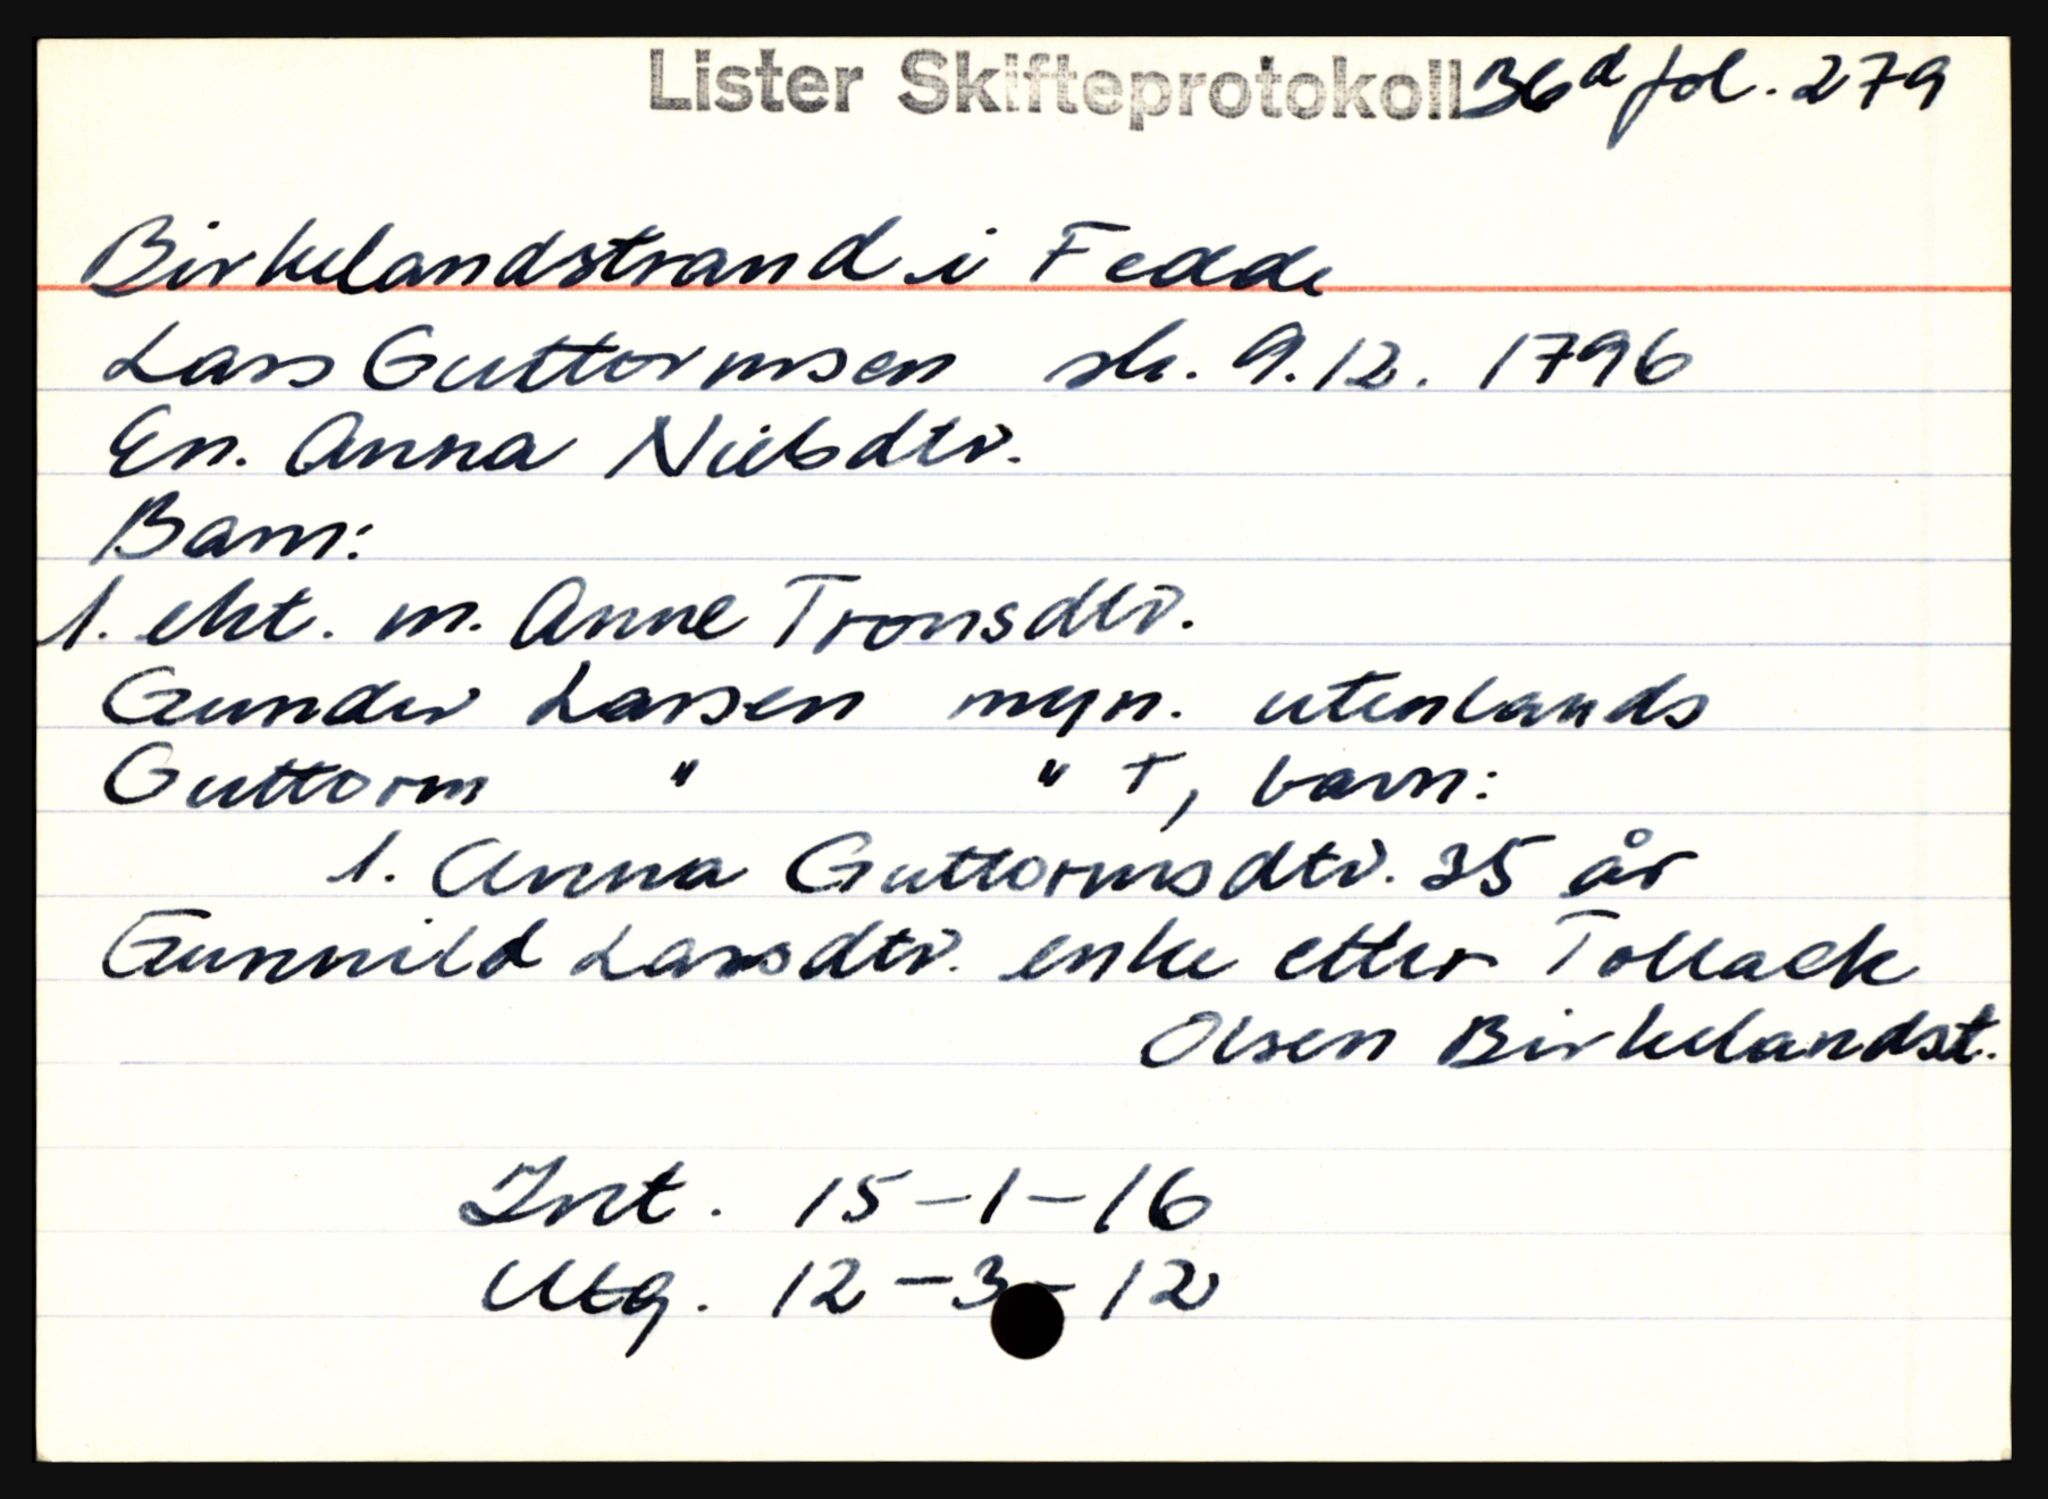 Lister Skifteprotokoll 36d fol. 279
Birkelandstrand i Fedde
Lars Guttormsen sk. 9.12. 1796
En. Anna Nielsdtr.
Barn:
1. ekt. m. Anne Tronsdtr.
Gunder Larsen myn. utenlands
Guttorm " " +, barn:
1. Anna Guttormsdtr. 35 år
Gunnild Larsdtr. enke etter Tollack
Olsen Birkelandst.
Int. 15-1-16
Utg. 12-3-12